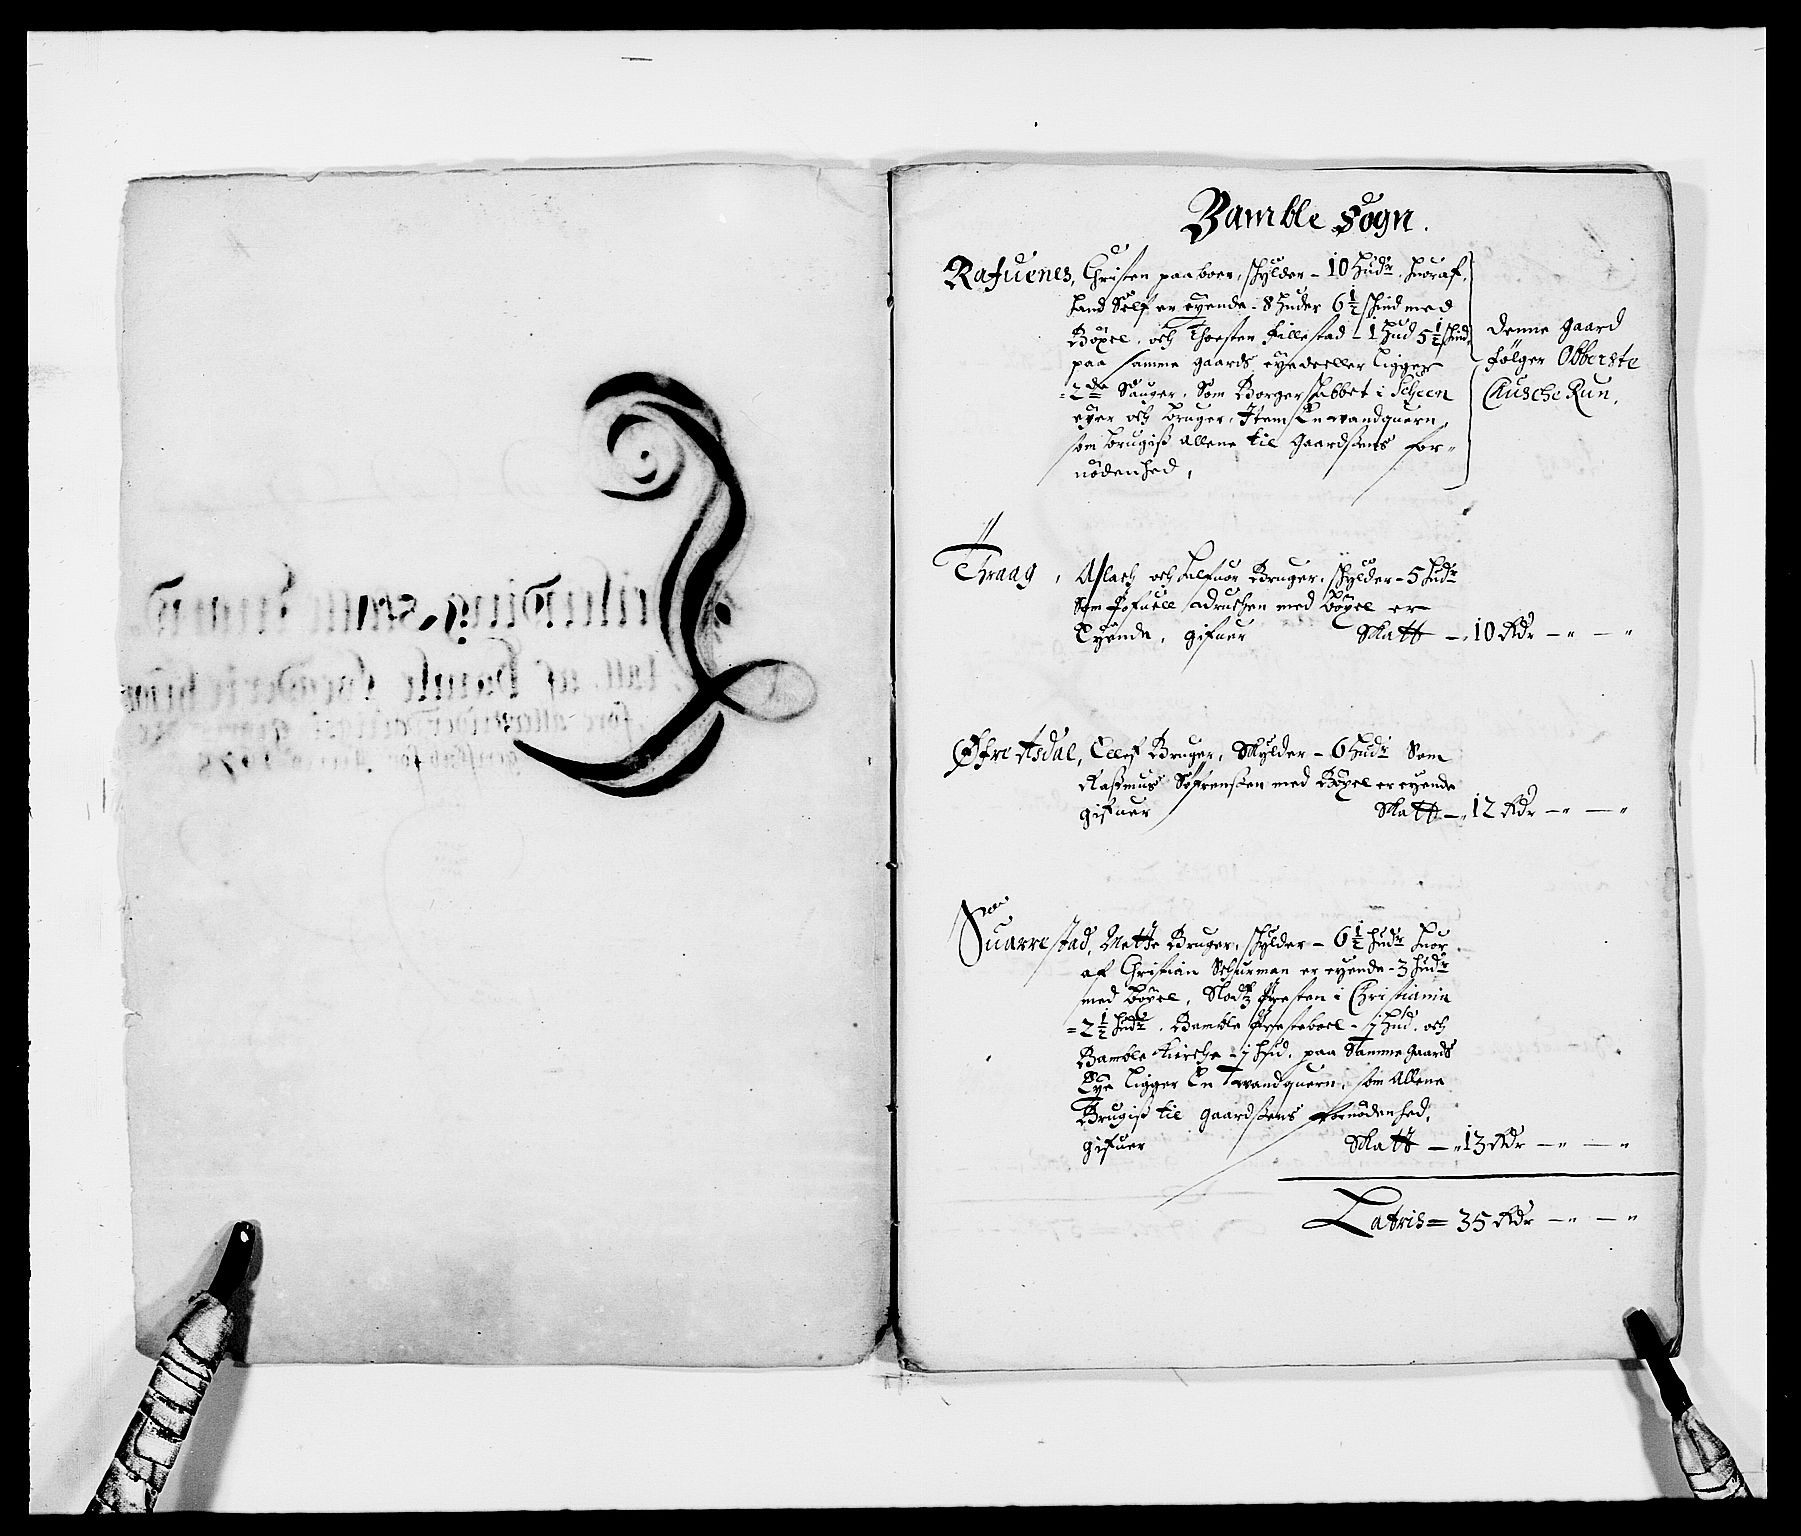 Bamble Sogn.
Rafuenes, Christen paaboer, schylder - 10 Hudr, huoraf
hand Self er eyende - 8 huder 6½ schind med
Böxel, och Thorsten Fillestad - 1 Hud 5½ schind,
paa samme gaards eyedeeller Ligger
= 2de Sauger, Som Borgerskabbet i Scheen
eyer och bruger, Item En wandquern,
som brugis allene til Gaardsens for-
nödenhed,
Denne gaard
følger Obberste
Thraag, Aslach och Halfuor Bruger, schylder - 5 hudr
Som Pofuell med böxel er
Eyende, gifuer Skatt — 10 Rdr — " — "
Øfre Asdal, Ellef Bruger, Skylder - 6 Hudr Som
Rasmus Söfrensen med Böxel er eyende
gifuer Skatt — 12 Rdr — " — "
Suarrestad, Mette Bruger, schylder - 6½ hudr huor
af Christian Schurman er eyende - 3 hudr
med böxel, Slodtz Presten i Christiania
= 2½ hudr, Bamble Presteboel - j hud, och
Bamble Kirche - j hud, paa Samme gaards
Eye Ligger En wandquern, som Allene
Brugis til gaardsens fornödenhed,
gifuer Skatt — 13 Rdr — " — "
Latris = 35 Rdr — " — "